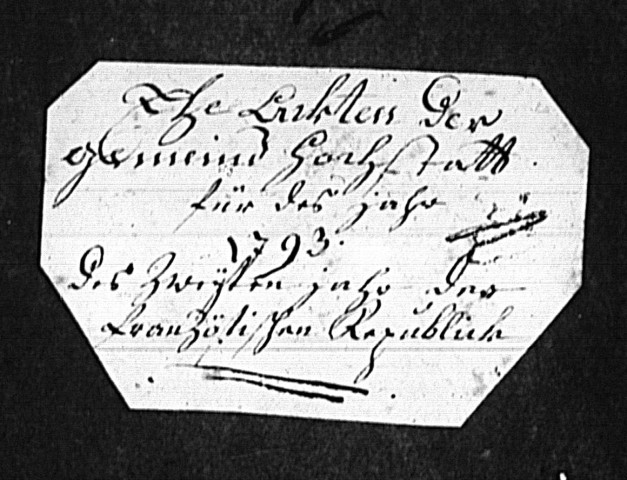 Ehe Ackten Der
gemeind Hochstatt
für des jahr
1793.
des Zweÿten jahr der
französischen Republick